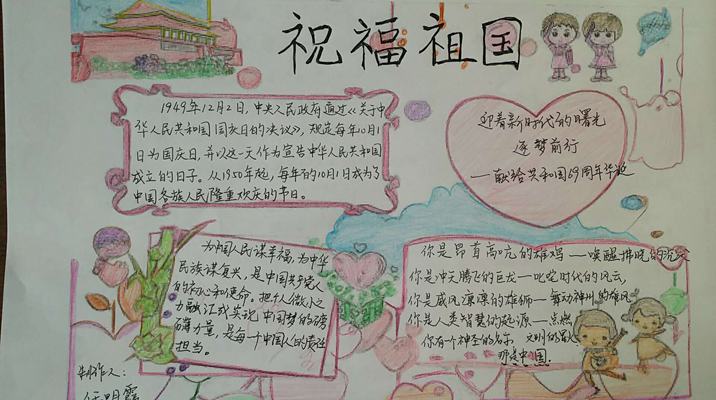 祝福祖国
1949年12月2日，中央人民政府通过《关于中
华人民共和国国庆日的决议》，规定每年10月1
日为国庆日，并以这一天作为宣告中华人民共和国
成立的日子。从1950年起，每年的10月1日成为了
中国各族人民隆重欢庆的节日。
迎着新时代的曙光
逐梦前行
——献给共和国69周年华诞
为中国人民谋幸福，为中华
民族谋复兴，是中国共产党人
的初心和使命，把个人微小之
力融汇成实现中国梦的磅
礴力量，是每一个中国人的责任
担当。
你是昂首高吭的雄鸡——唤醒拂晓的沉寂
你是冲天腾飞的巨龙——叱咤时代的风云，
你是威风凛凛的雄狮——舞动神州的雄风
你是人类智慧的起源——点燃
文明的星火
你有个神圣的名字，
那是中国.
制作人：
任明霞